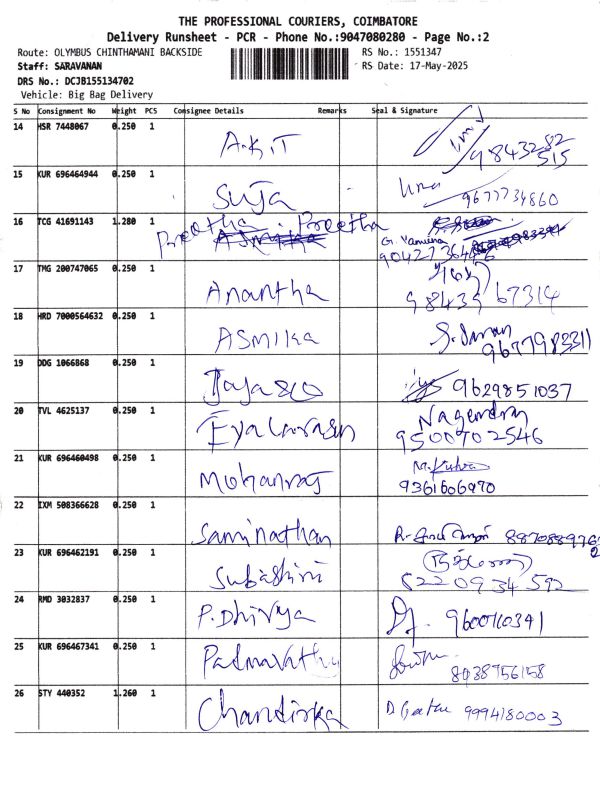 THE PROFESSIONAL COURIERS, COIMBATORE
Delivery Runsheet - PCR - Phone No.:9047080280 - Page No.:2
Route: OLYMBUS CHINTHAMANI BACKSIDE
RS No.: 1551347
Staff: SARAVANAN
RS Date: 17-May-2025
DRS No.: DCJB155134702
Vehicle: Big Bag Delivery
S No Consignment No Weight PCS Consignee Details Remarks Seal & Signature
14 HSR 7448067 0.250 1 A.K.T
9843282
515
15 KUR 696464944 0.250 1 Suja Uma
9677734860
16 TCG 41691143 1.280 1 Preetha Preetha
G. Yamuna
17 TMG 200747065 0.250 1 Anantha
98435 67314
18 HRD 7000564632 0.250 1 ASMIKA
9677983311
19 DDG 1066868 0.250 1 9629851037
20 TVL 4625137 0.250 1 Nagendran
9500702546
21 KUR 696460498 0.250 1 Mohanraj
9361606970
22 IXM 508366628 0.250 1 Saminathan
23 KUR 696462191 0.250 1 Subashini
24 RMD 3032837 0.250 1 P.Dhivya
25 KUR 696467341 0.250 1 Padmavathy
26 STY 440352 1.260 1 Chandirka D Geetha 9994180003